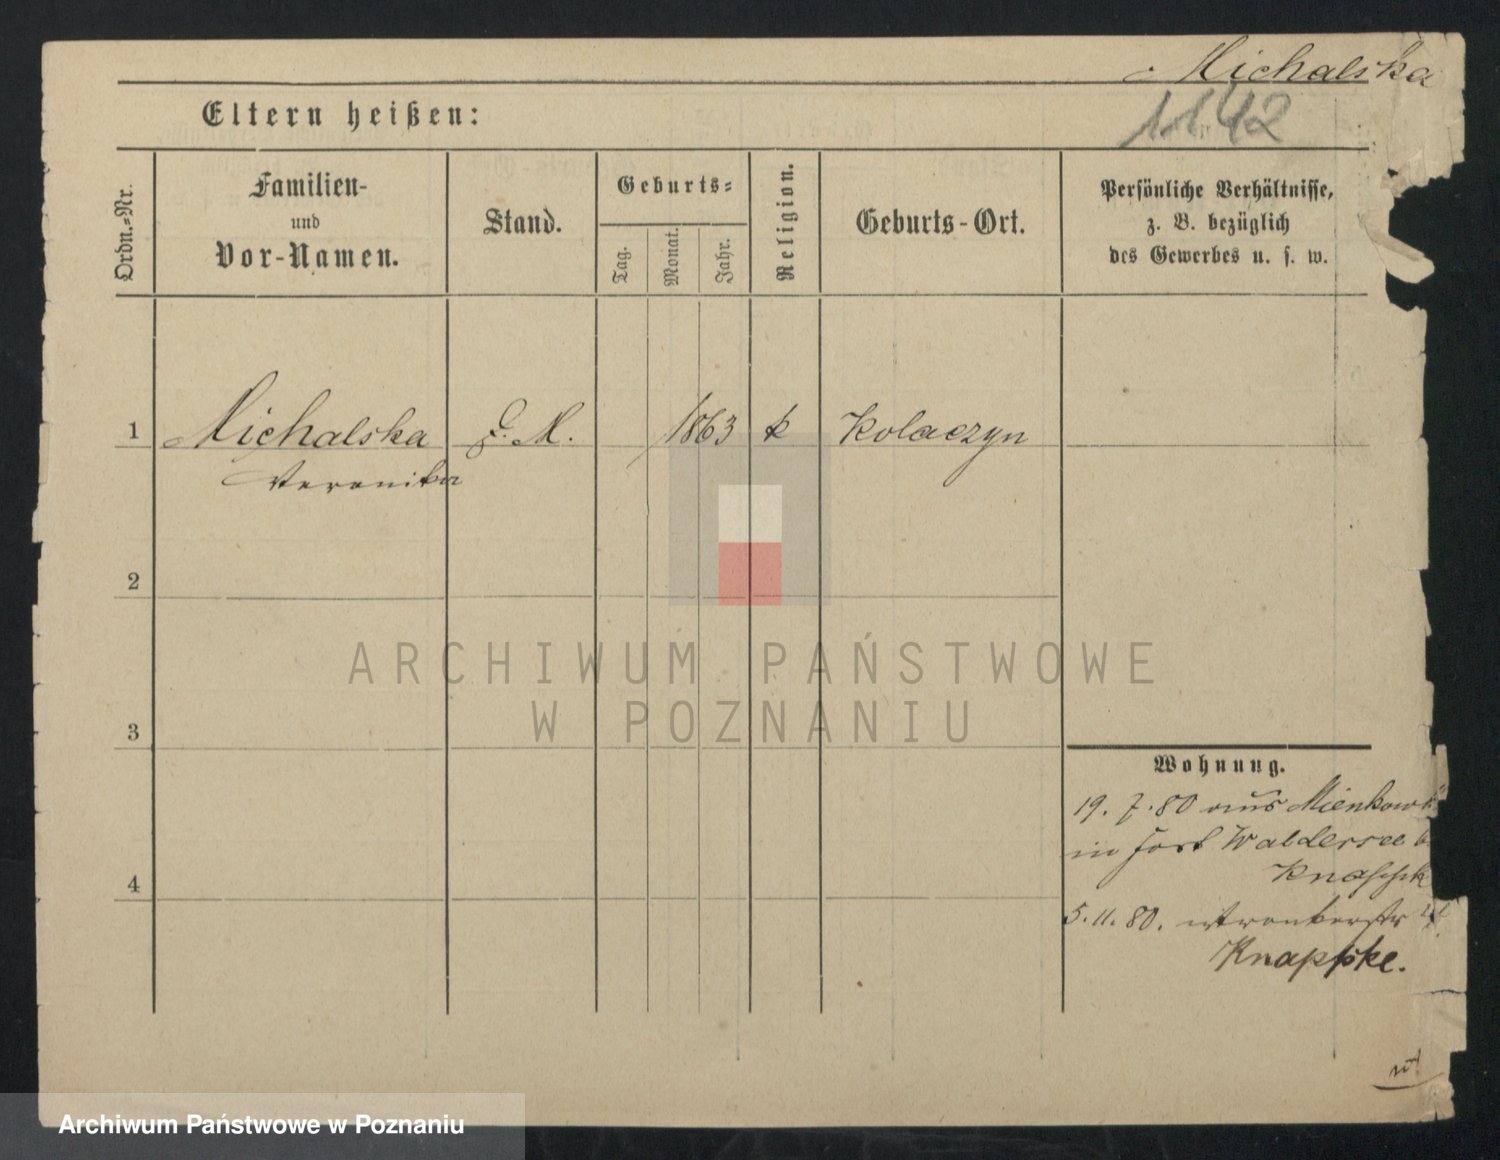 Michalska
1142
Eltern heißen:
Ordn.-Nr.
Familien-
und
Vor-Namen.
Stand.
Geburts-
Tag.
Monat.
Jahr.
Religion.
Geburts-Ort.
Persönliche Verhältnisse,
z. B. bezüglich
des Gewerbes u. s. w.
1 Michalska D. M. 1863 k Kolaczyn
Veronika
2
3
4
Wohnung.
19. 7. 80 aus
in Fort Waldersee b.
5. 11. 80.
Knappke.
ARCHIWUM PAŃSTWOWE
W POZNANIU
Archiwum Państwowe w Poznaniu